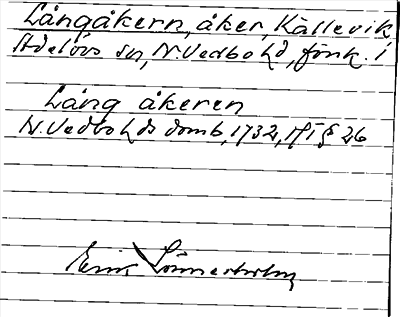 Långåkern, åker, Källevik
Adelövs sn, N. Vedbo hd, Jönk. l
Lång åkeren
N. Vedbo hds domb, 1732, § 26
Erik Lönnerholm